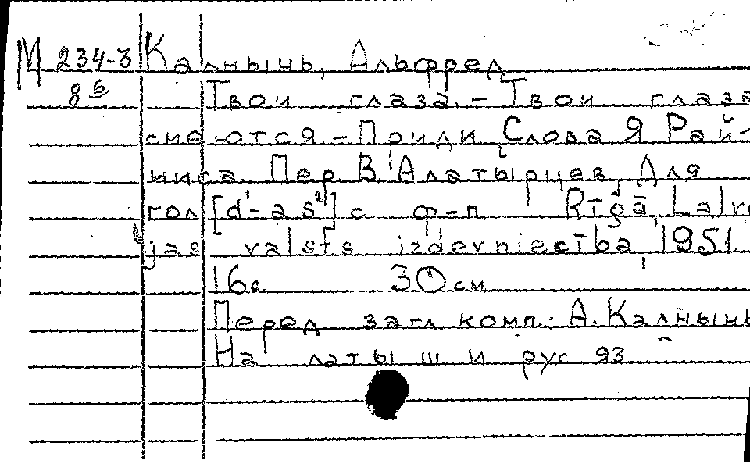 М 234-3 Калнынь, Альфред
8 б Твои глаза. - Твои глаза
смеются - Приди. Слова Я Рай-
ниса. Пер В Алатырцев. Для
гол [d'-as²] с ф-п Rīgā, Latvi
jas valsts izdevniecība, 1951
16с 30 см
Перед загл комп.: А. Калнынь
На латыш и рус яз